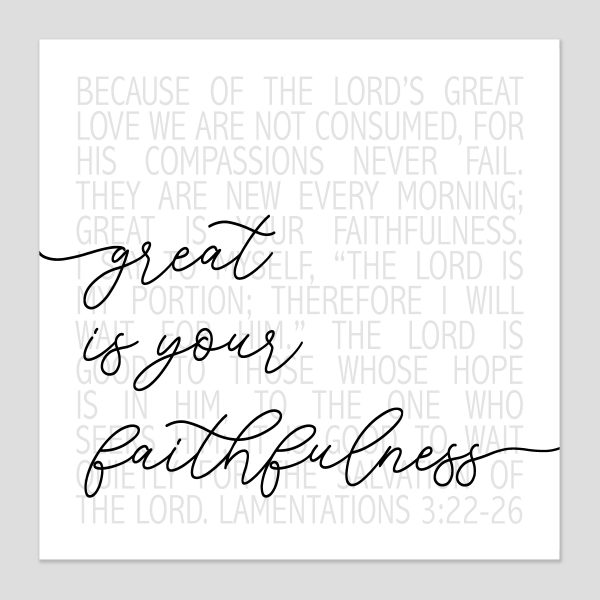 BECAUSE OF THE LORD'S GREAT
LOVE WE ARE NOT CONSUMED, FOR
HIS COMPASSIONS NEVER FAIL.
THEY ARE NEW EVERY MORNING;
GREAT IS YOUR FAITHFULNESS.
I SAY TO MYSELF, “THE LORD IS
MY PORTION; THEREFORE I WILL
WAIT FOR HIM.” THE LORD IS
GOOD TO THOSE WHOSE HOPE
IS IN HIM, TO THE ONE WHO
SEEKS HIM; IT IS GOOD TO WAIT
QUIETLY FOR THE SALVATION OF
THE LORD. LAMENTATIONS 3:22-26
great
is your
faithfulness